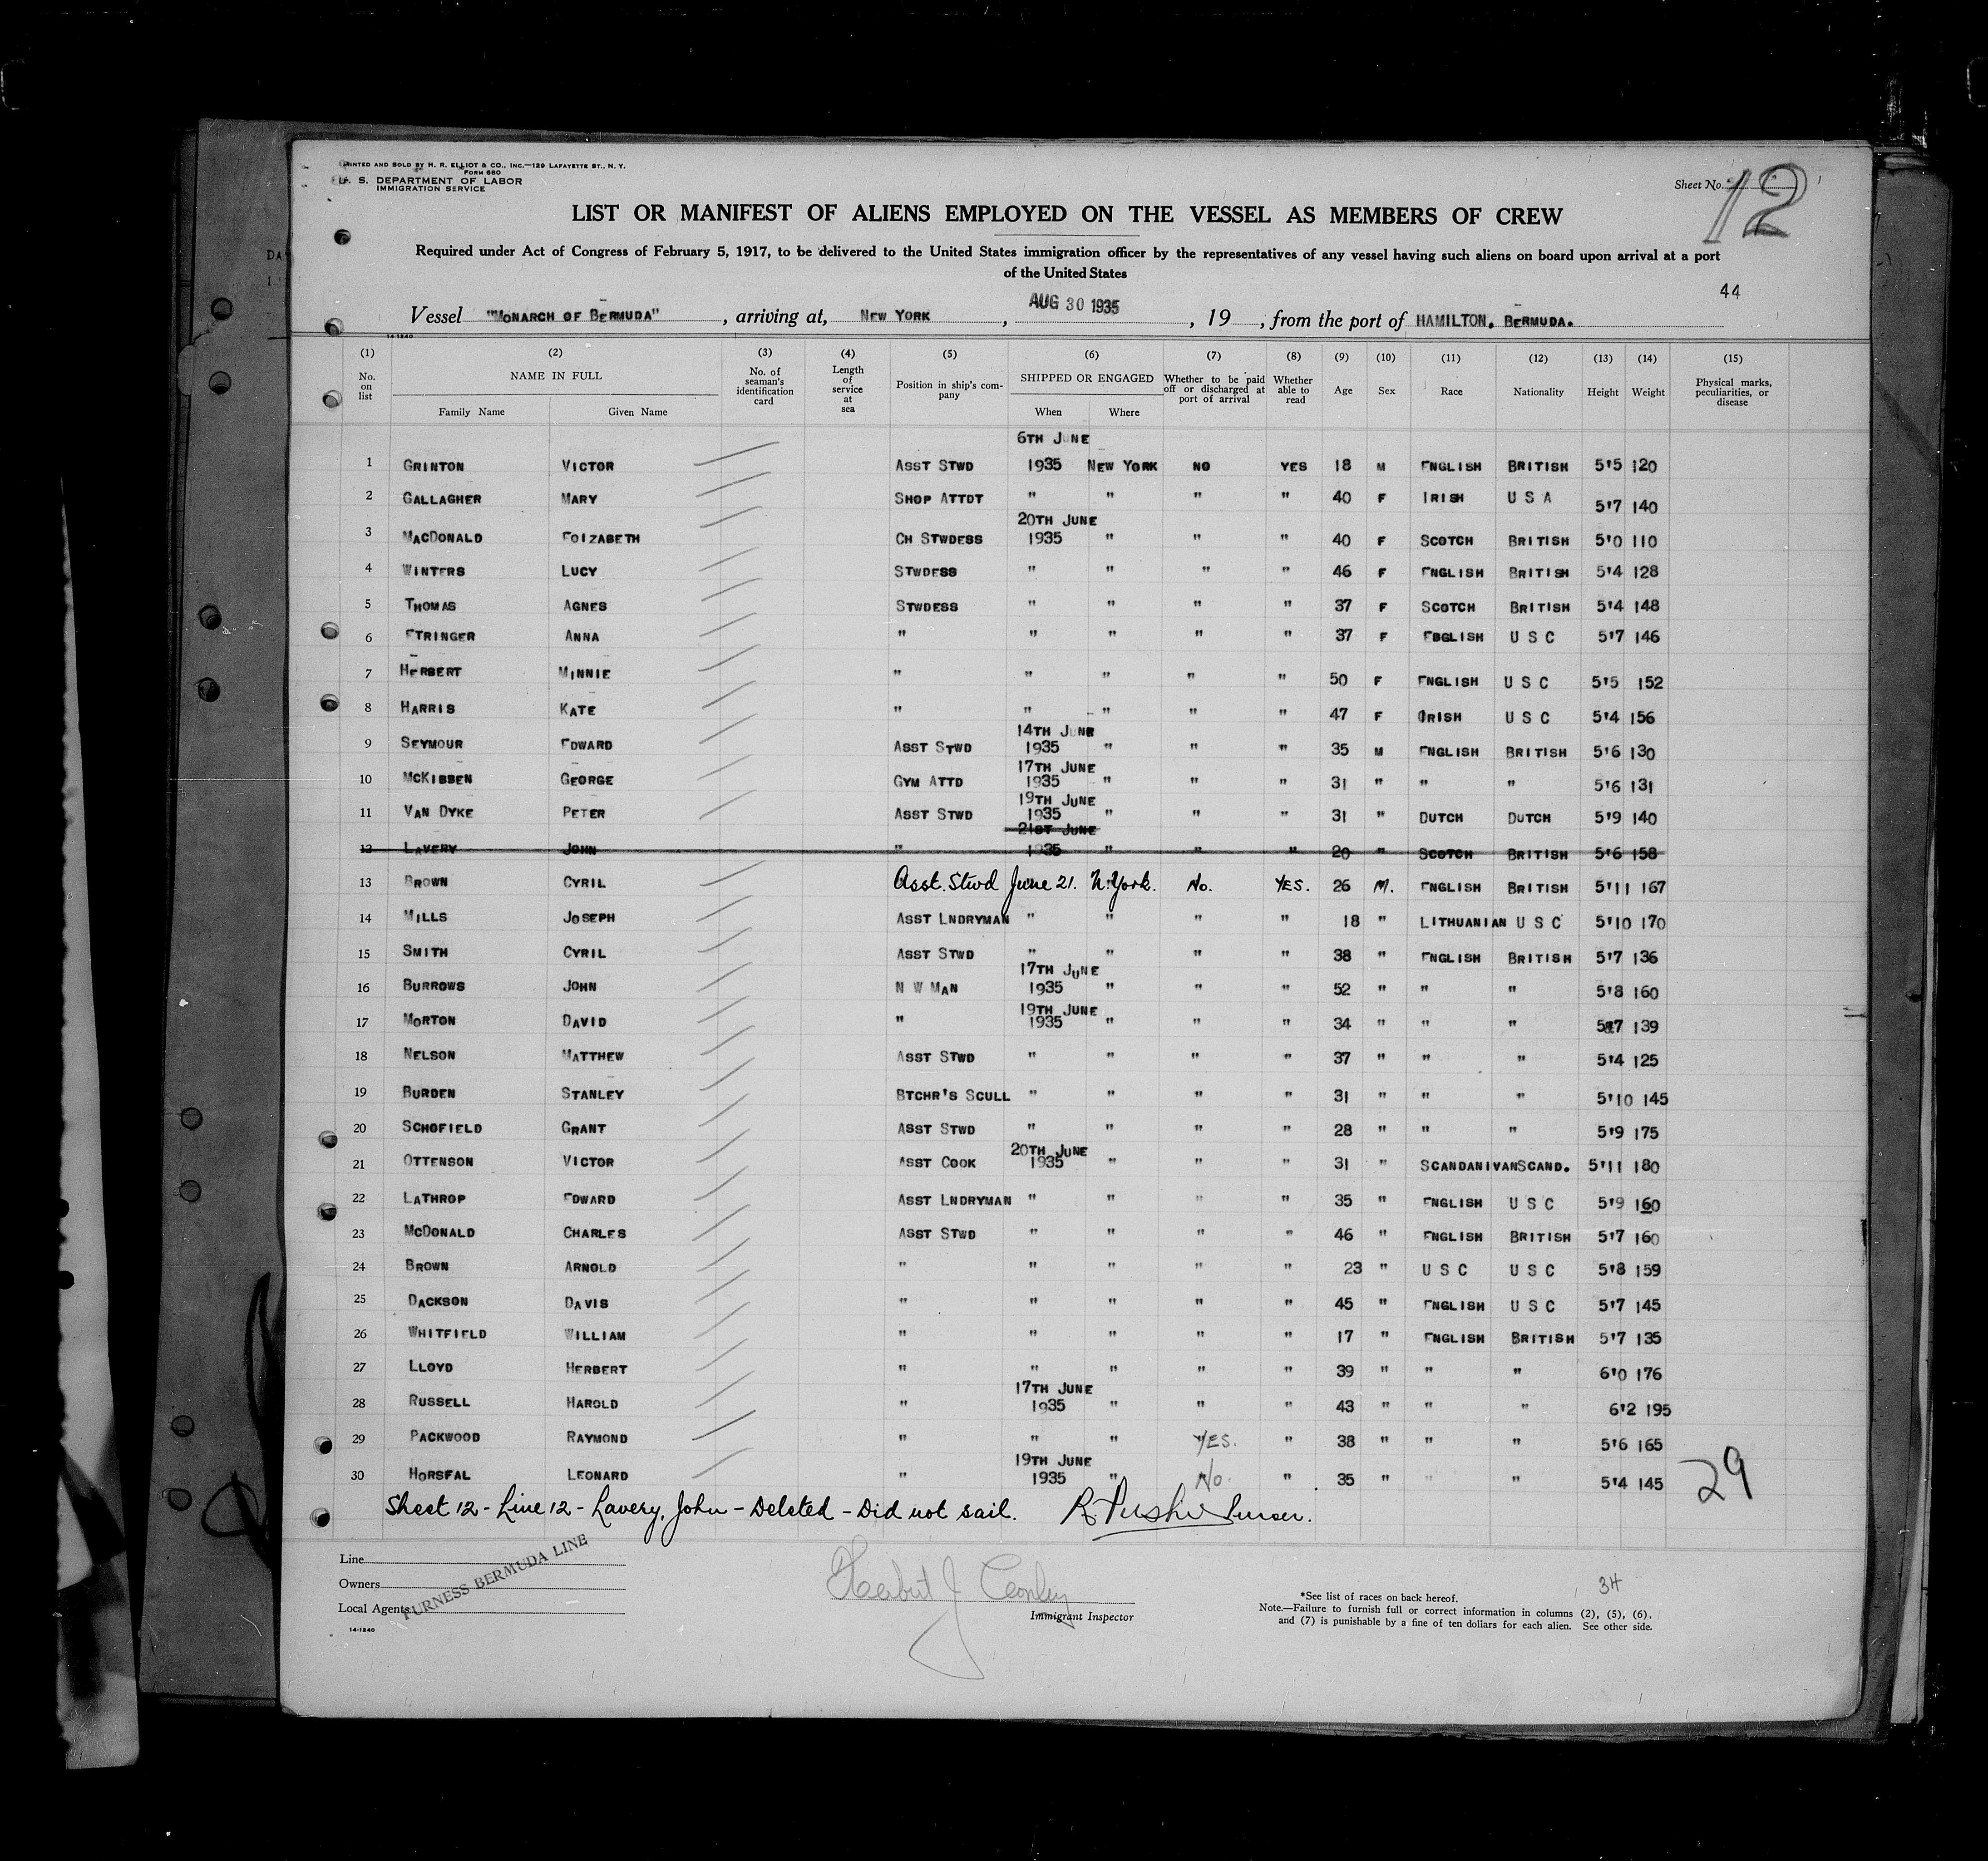 PRINTED AND SOLD BY H. R. ELLIOT & CO., INC.—129 LAFAYETTE ST., N. Y.
FORM 680
U. S. DEPARTMENT OF LABOR
IMMIGRATION SERVICE
Sheet No. 12
LIST OR MANIFEST OF ALIENS EMPLOYED ON THE VESSEL AS MEMBERS OF CREW
Required under Act of Congress of February 5, 1917, to be delivered to the United States immigration officer by the representatives of any vessel having such aliens on board upon arrival at a port
of the United States
44
Vessel "MONARCH OF BERMUDA", arriving at, NEW YORK, AUG 30 1935, 19 , from the port of HAMILTON. BERMUDA.
14-1240
(1) (2) (3) (4) (5) (6) (7) (8) (9) (10) (11) (12) (13) (14) (15)
No. on list NAME IN FULL Family Name Given Name No. of seaman's identification card Length of service at sea Position in ship's company SHIPPED OR ENGAGED When Where Whether to be paid off or discharged at port of arrival Whether able to read Age Sex Race Nationality Height Weight Physical marks, peculiarities, or disease
6TH JUNE
1 GRINTON VICTOR ASST STWD 1935 NEW YORK NO YES 18 M ENGLISH BRITISH 5'5 120
2 GALLAGHER MARY SHOP ATTDT " " " " 40 F IRISH U S A 5'7 140
20TH JUNE
3 MACDONALD EOIZABETH CH STWDESS 1935 " " " 40 F SCOTCH BRITISH 5'0 110
4 WINTERS LUCY STWDESS " " " " 46 F ENGLISH BRITISH 5'4 128
5 THOMAS AGNES STWDESS " " " " 37 F SCOTCH BRITISH 5'4 148
6 ETRINGER ANNA " " " " " 37 F EBGLISH U S C 5'7 146
7 HERBERT MINNIE " " " " " 50 F ENGLISH U S C 5'5 152
8 HARRIS KATE " " " " " 47 F ORISH U S C 5'4 156
14TH JUNE
9 SEYMOUR EDWARD ASST STWD 1935 " " " 35 M ENGLISH BRITISH 5'6 130
17TH JUNE
10 MCKIBBEN GEORGE GYM ATTD 1935 " " " 31 " " " 5'6 131
19TH JUNE
11 VAN DYKE PETER ASST STWD 1935 " " " 31 " DUTCH DUTCH 5'9 140
21ST JUNE
12 LAVERY JOHN " 1935 " " " 20 " SCOTCH BRITISH 5'6 158
13 BROWN CYRIL Asst. Stwd June 21. N. York. No. YES. 26 M. ENGLISH BRITISH 5'11 167
14 MILLS JOSEPH ASST LNDRYMAN " " " " 18 " LITHUANIAN U S C 5'10 170
15 SMITH CYRIL ASST STWD " " " " 38 " ENGLISH BRITISH 5'7 136
17TH JUNE
16 BURROWS JOHN N W MAN 1935 " " " 52 " " " 5'8 160
19TH JUNE
17 MORTON DAVID " 1935 " " " 34 " " " 5'7 139
18 NELSON MATTHEW ASST STWD " " " " 37 " " " 5'4 125
19 BURDEN STANLEY BTCHR'S SCULL " " " " 31 " " " 5'10 145
20 SCHOFIELD GRANT ASST STWD " " " " 28 " " " 5'9 175
20TH JUNE
21 OTTENSON VICTOR ASST COOK 1935 " " " 31 " SCANDANIVAN SCAND. 5'11 180
22 LATHROP EDWARD ASST LNDRYMAN " " " " 35 " ENGLISH U S C 5'9 160
23 MCDONALD CHARLES ASST STWD " " " " 46 " ENGLISH BRITISH 5'7 160
24 BROWN ARNOLD " " " " " 23 " U S C U S C 5'8 159
25 DACKSON DAVIS " " " " " 45 " ENGLISH U S C 5'7 145
26 WHITFIELD WILLIAM " " " " " 17 " ENGLISH BRITISH 5'7 135
27 LLOYD HERBERT " " " " " 39 " " " 6'0 176
17TH JUNE
28 RUSSELL HAROLD " 1935 " " " 43 " " " 6'2 195
29 PACKWOOD RAYMOND " " " YES. " 38 " " " 5'6 165
19TH JUNE
30 HORSFAL LEONARD " 1935 " No. " 35 " " " 5'4 145
29
Sheet 12 - Line 12 - Lavery, John - Deleted - Did not sail. Purser.
Line
Owners
Local Agents
FURNESS BERMUDA LINE
14-1240
Herbert J Conley
Immigrant Inspector
34
*See list of races on back hereof.
Note.—Failure to furnish full or correct information in columns (2), (5), (6),
and (7) is punishable by a fine of ten dollars for each alien. See other side.